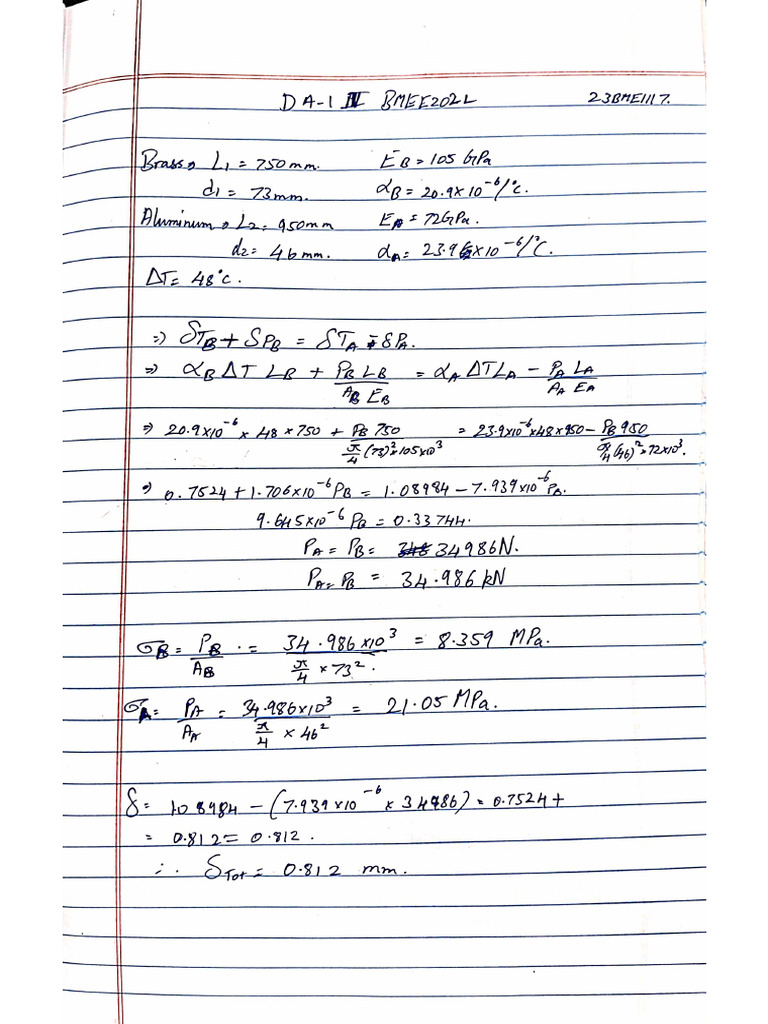 DA-1 IV BMEE202L 23BME1117.
Brass → L₁ = 750mm. E_B = 105 GPa
d₁ = 73mm. α_B = 20.9×10⁻⁶/°C.
Aluminum → L₂ = 950mm E_A = 72GPa.
d₂ = 46mm. α_A = 23.9×10⁻⁶/°C.
ΔT = 48°C.
⇒ δT_B + δP_B = δT_A - δP_A.
⇒ α_B ΔT L_B + P_B L_B / A_B E_B = α_A ΔT L_A − P_A L_A / A_A E_A
⇒ 20.9×10⁻⁶ × 48 × 750 + P_B 750 / π/4 (73)²×105×10³ = 23.9×10⁻⁶×48×950 − P_B 950 / π/4 (46)²×72×10³.
⇒ 0.7524 + 1.706×10⁻⁶ P_B = 1.08984 − 7.939×10⁻⁶ P_A.
9.645×10⁻⁶ P_B = 0.33744.
P_A = P_B = 34986N.
P_A = P_B = 34.986 kN
σ_B = P_B / A_B = 34.986×10³ / π/4 × 73². = 8.359 MPa.
σ_A = P_A / A_A = 34.986×10³ / π/4 × 46² = 21.05 MPa.
δ = 10 8984 − (7.939×10⁻⁶ × 34986) = 0.7524 +
= 0.812 = 0.812.
∴ δ_Tot = 0.812 mm.